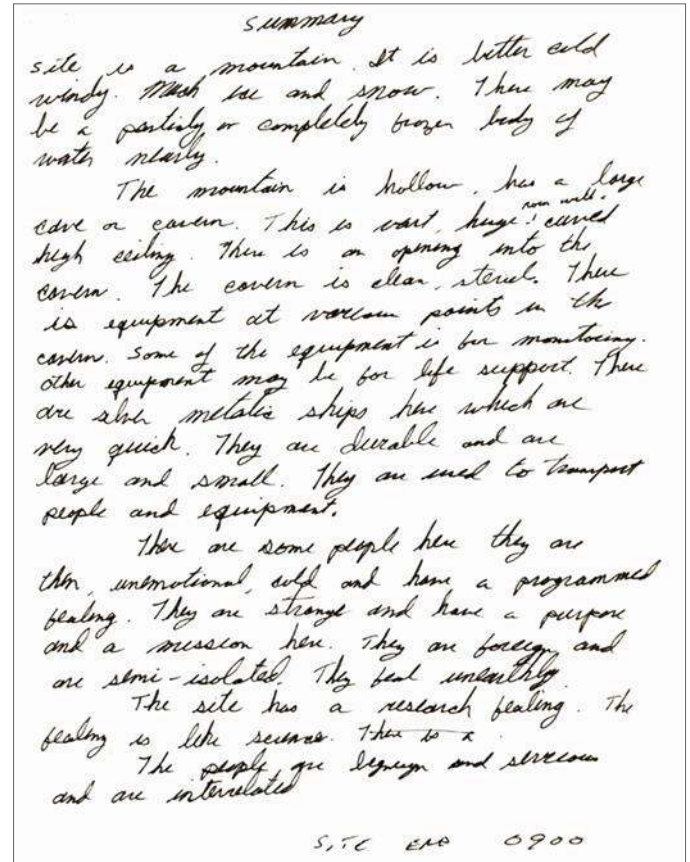 Summary
Site is a mountain. It is bitter cold
windy. Much ice and snow. There may
be a partialy or completely frozen body of
water nearly.
The mountain is hollow, has a large
cave or cavern. This is vast, huge! curved
high ceiling. There is an opening into the
cavern. The cavern is clean, steril. There
is equipment at various points in the
cavern. Some of the equipment is for monitoring.
other equipment may be for life support. There
are silver metalic ships here which are
very quick. They are durable and are
large and small. They are used to transport
people and equipment.
There are some people here they are
thin, unemotional, cold and have a programmed
fealing. They are strange and have a purpose
and a mission here. They are foreign and
are semi-isolated. They feal unearthly.
The site has a research fealing. The
fealing is like science. There is a
The people are and
and are interrelated
SITE END 0900